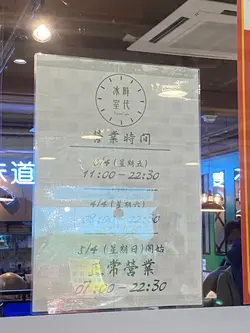 冰時
室代
營業時間
3/4 (星期五)
11:00 – 22:30
4/4 (星期六)
5/4 (星期日)開始
正常營業
07:00 – 22:30
味道